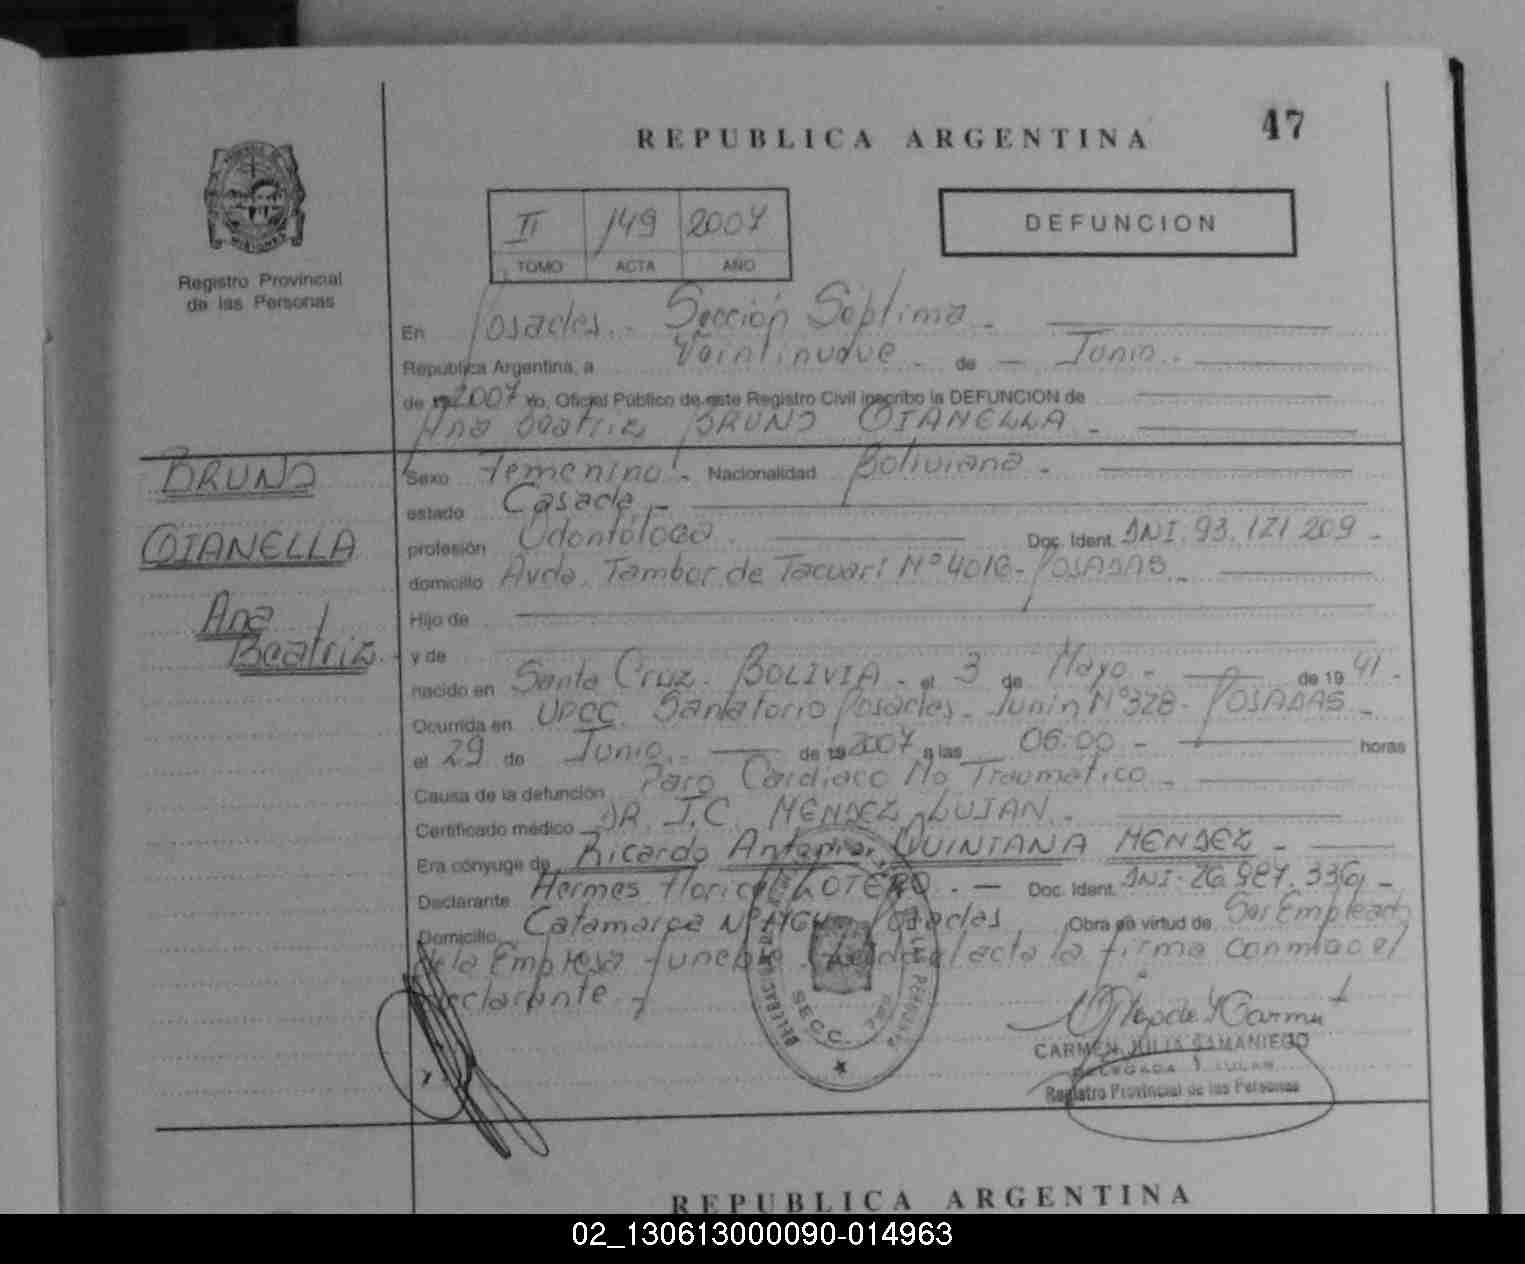 47
REPUBLICA ARGENTINA
II 149 2007
TOMO ACTA AÑO
DEFUNCION
Registro Provincial
de las Personas
En Posadas. - Sección Séptima -
República Argentina, a Veintinueve - de - Junio. -
de 2007 Yo, Oficial Público de este Registro Civil inscribo la DEFUNCION de
Ana Beatriz BRUNO GIANELLA -
BRUNO
GIANELLA
Ana
Beatriz
Sexo Femenino. - Nacionalidad Boliviana -
estado Casada. -
profesión Odontóloga. Doc. Ident. DNI. 93.121.209 -
domicilio Avda. Tambor de Tacuarí Nº 4016 - POSADAS -
Hijo de
y de
nacido en Santa Cruz. BOLIVIA - el 3 de Mayo - de 19 41 -
Ocurrida en UPCC. Sanatorio Posadas - Junin Nº 328 - POSADAS -
el 29 de Junio. de 2007 a las 06:00 - horas
Causa de la defunción Paro Cardiaco No Traumático -
Certificado médico DR. J.C. MENDEZ LUJAN. -
Era cónyuge de Ricardo Antonio QUINTANA MENDEZ -
Declarante Hermes Floricel LOTERO. - Doc. Ident. DNI - 26.987.336 -
Domicilio Catamarca Nº Posadas Obra en virtud de Ser Empleado
de la Empresa funebre. el acta la firma conmigo el
declarante. -
DELEGACION
SECC. 7ma
DE LAS PERSONAS
CARMEN JULIA SAMANIEGO
DELEGADA TITULAR
Registro Provincial de las Personas
REPUBLICA ARGENTINA
02_130613000090-014963